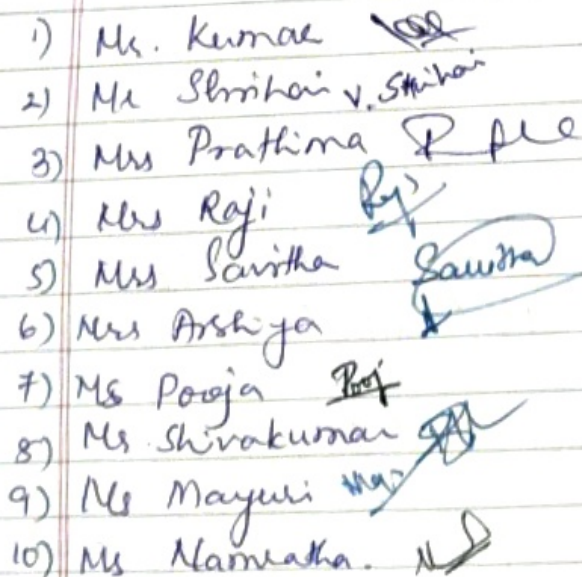 1) Mr. Kumar
2) Mr Shrihari V. Shrihari
3) Mrs Prathima
4) Mrs Raji Raji
5) Mrs Savitha Savitha
6) Mrs Arshiya
7) Ms Pooja Pooj
8) Mr. Shivakumar
9) Ms Mayuri
10) Ms Namratha.